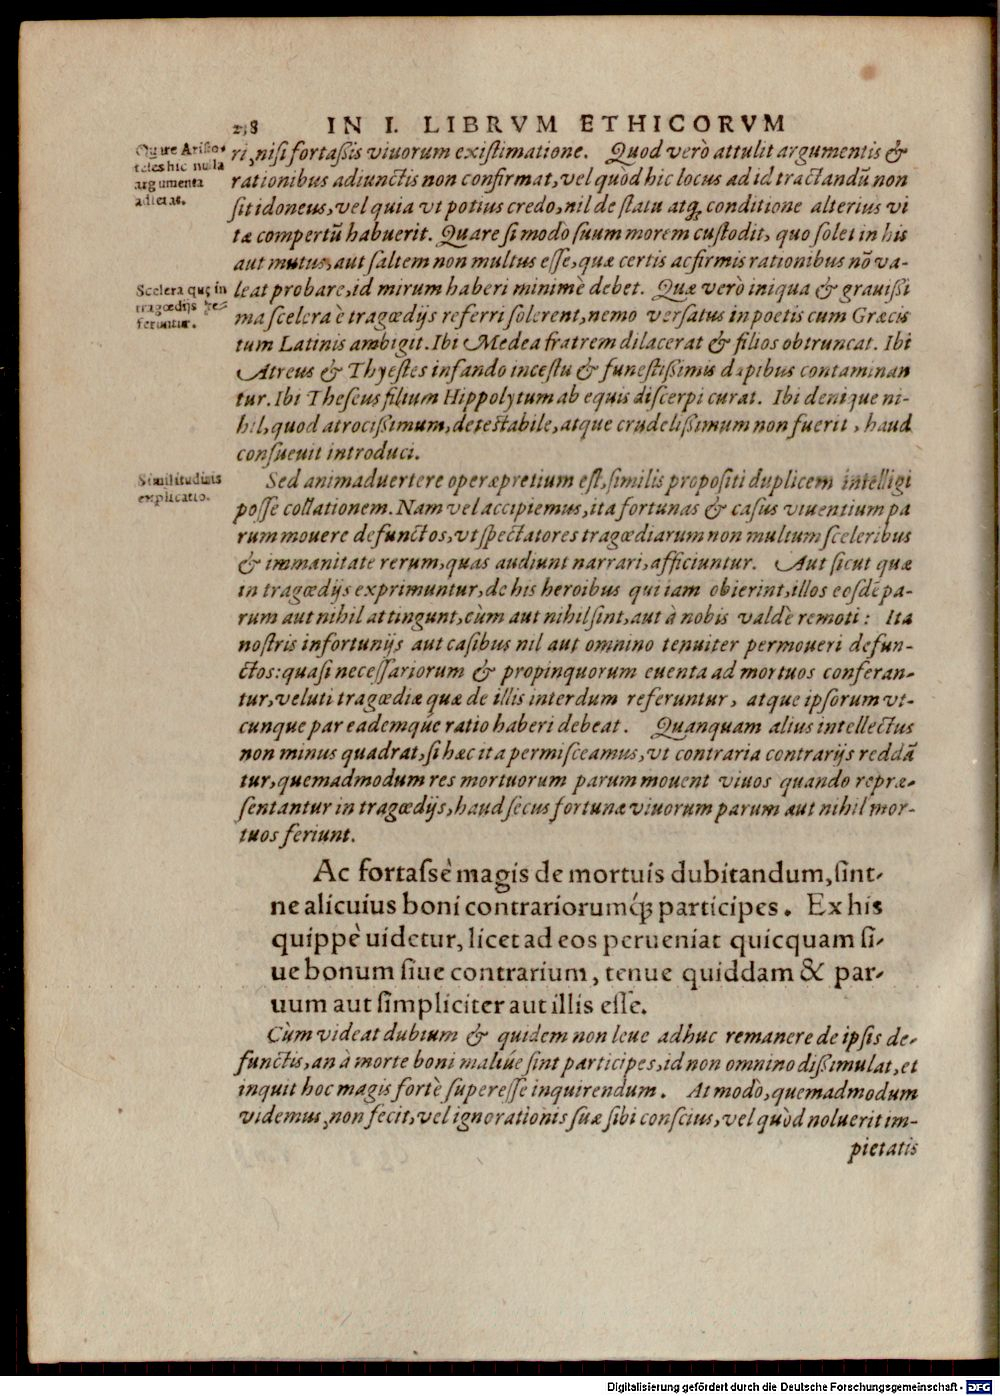 238 IN I. LIBRVM ETHICORVM
Quare Aristo-
teles hic nulla
argumenta
adferat.
ri, nisi fortaßis viuorum existimatione. Quod verò attulit argumentis &
rationibus adiunctis non confirmat, vel quòd hic locus ad id tractandũ non
sit idoneus, vel quia vt potius credo, nil de statu atq; conditione alterius vi
tæ compertũ habuerit. Quare si modò suum morem custodit, quo solet in his
aut mutus, aut saltem non multus esse, quæ certis ac firmis rationibus nõ va-
Scelera quę in
tragœdijs re-
feruntur.
leat probare, id mirum haberi minimè debet. Quæ verò iniqua & grauißi
ma scelera è tragœdijs referri solerent, nemo versatus in poetis cum Græcis
tum Latinis ambigit. Ibi Medea fratrem dilacerat & filios obtruncat. Ibi
Atreus & Thyestes infando incestu & funestißimis dapibus contaminan
tur. Ibi Theseus filium Hippolytum ab equis discerpi curat. Ibi denique ni-
hil, quod atrocißimum, detestabile, atque crudelißimum non fuerit, haud
consueuit introduci.
Similitudinis
explicatio.
Sed animaduertere operæpretium est, similis propositi duplicem intelligi
posse collationem. Nam vel accipiemus, ita fortunas & casus viuentium pa
rum mouere defunctos, vt spectatores tragœdiarum non multum sceleribus
& immanitate rerum, quas audiunt narrari, afficiuntur. Aut sicut quæ
in tragœdijs exprimuntur, de his heroibus qui iam obierint, illos eosdẽ pa-
rum aut nihil attingunt, cùm aut nihil sint, aut à nobis valdè remoti: Ita
nostris infortunijs aut casibus nil aut omnino tenuiter permoueri defun-
ctos: quasi necessariorum & propinquorum euenta ad mortuos conferan-
tur, veluti tragœdiæ quæ de illis interdum referuntur, atque ipsorum vt-
cunque par eademq́ue ratio haberi debeat. Quanquam alius intellectus
non minus quadrat, si hæc ita permisceamus, vt contraria contrarijs reddã
tur, quemadmodum res mortuorum parum mouent viuos quando repræ-
sentantur in tragœdijs, haud secus fortunæ viuorum parum aut nihil mor-
tuos feriunt.
Ac fortassè magis de mortuis dubitandum, sint-
ne alicuius boni contrariorumq́; participes. Ex his
quippè uidetur, licet ad eos perueniat quicquam si-
ue bonum siue contrarium, tenue quiddam & par-
uum aut simpliciter aut illis esse.
Cùm videat dubium & quidem non leue adhuc remanere de ipsis de-
functis, an à morte boni maliúe sint participes, id non omnino dißimulat, et
inquit hoc magis fortè superesse inquirendum. At modò, quemadmodum
videmus, non fecit, vel ignorationis suæ sibi conscius, vel quòd noluerit im-
pietatis
Digitalisierung gefördert durch die Deutsche Forschungsgemeinschaft - DFG